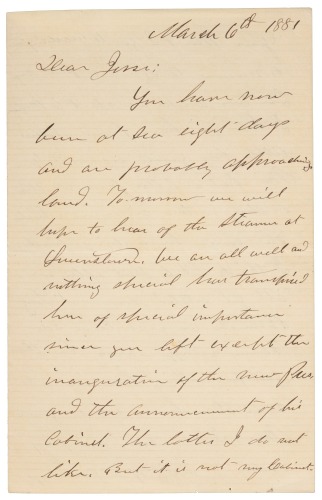 March 6th 1881
Dear Jesse:
You have now
been at sea eight days
and are probably approaching
land. To-morrow we will
hope to hear of the Steamer at
Queenstown. We are all well and
nothing special has transpired
here of special importance
since you left except the
inauguration of the new Pres.
and the announcement of his
Cabinet. The latter I do not
like. But it is not my Cabinet.